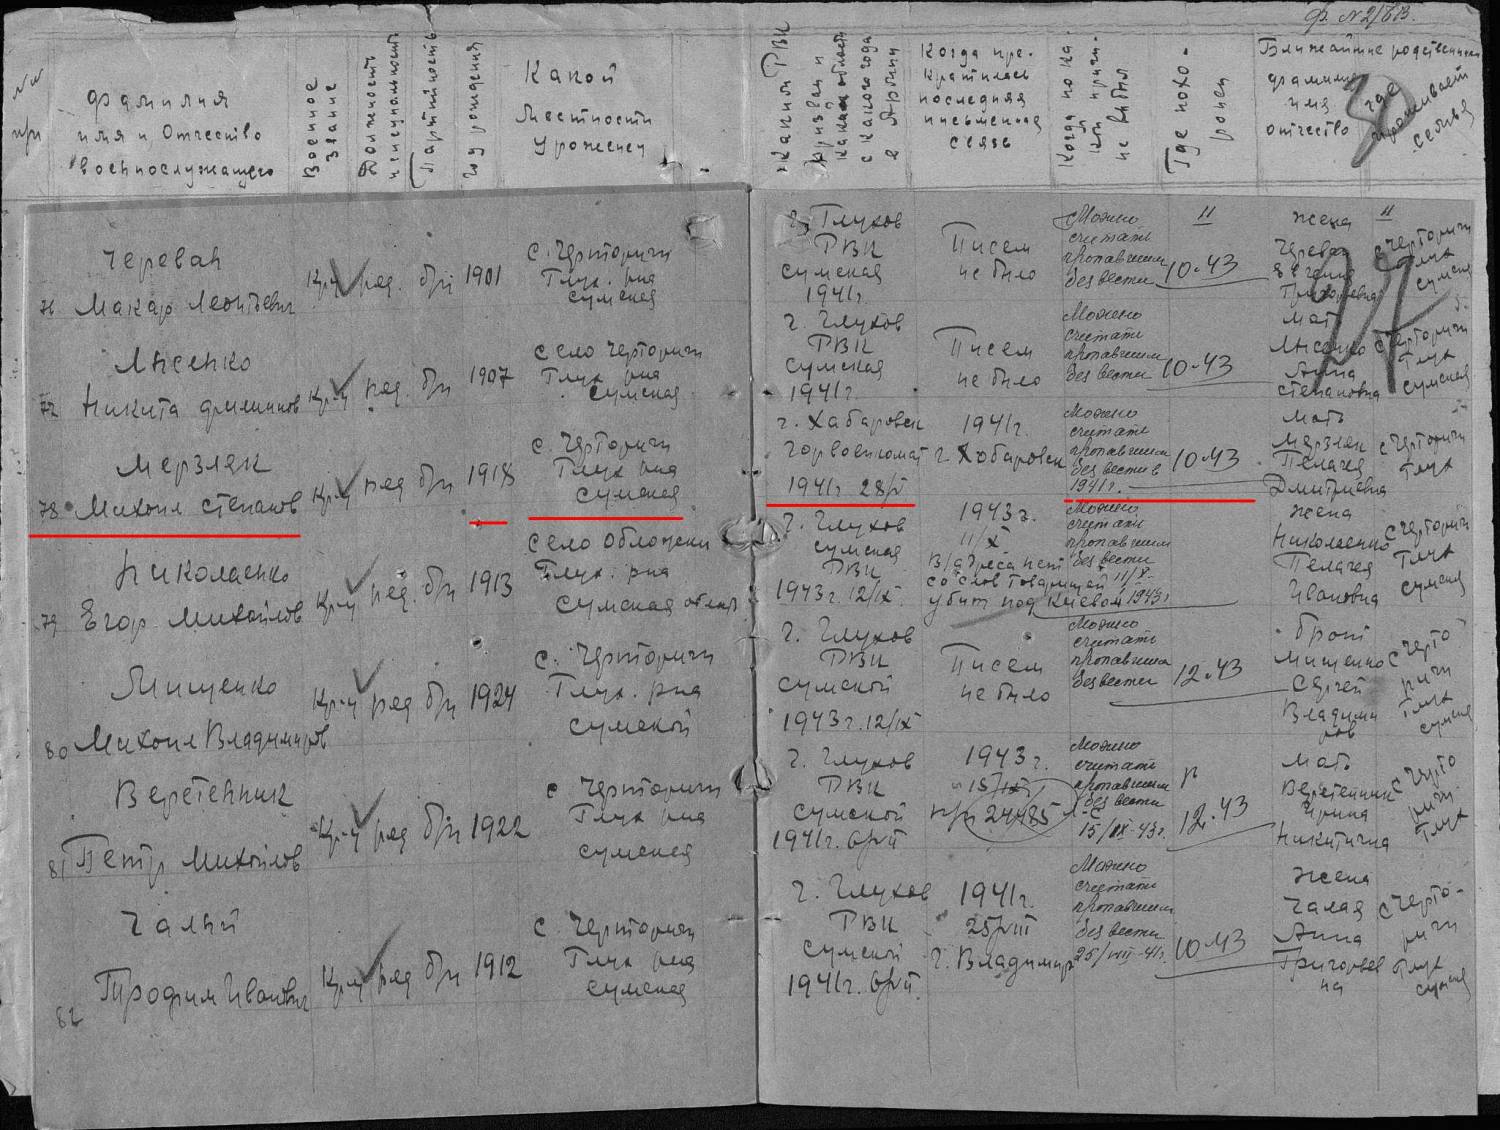 Ф. №2/БВ.
№№
п/п
фамилия
имя и Отчество
военнослужащего
Военное
звание
Должность
Партийность
Год рождения
Какой
местности
урожен
Каким РВК
призван и
какой область
с какого года
в Армии
Когда пре-
кратилась
последняя
письменная
связь
Когда по ка-
кой причи-
не выбыл
Где похо-
ронен
Ближайшие родственники
фамилия
имя
отчество
где
проживает
семья
76
Черевач
Макар Леонтьевич
Кр-ц ряд. б/п 1901
с. Черториги
Глух. р-на
сумская
г. Глухов
РВК
сумская
1941г.
Писем
не было
Можно
считать
пропавшим
без вести
10-43
жена
Черевач
Евгения
Григорьевна
с Черториги
Глух
сумская
77
Лысенко
Никита филиппов
Кр-ц ряд. б/п 1907
село Черториги
Глух р-на
сумская
г. Глухов
РВК
сумская
1941г.
Писем
не было
Можно
считать
пропавшим
без вести
10-43
мать
Лысенко
Анна
степановна
с Черториги
Глух
сумская
78
Мерзляк
Михаил степанов
Кр-ц ряд б/п 1918
с. Черториги
Глух р-на
сумская
г. Хабаровск
Горвоенкомат
1941г 28/V
1941г.
г. Хабаровск
Можно
считать
пропавшим
без вести в
1941г.
10-43
мать
Мерзляк
Пелагея
Дмитриевна
с Черториги
Глух
79
Николаенко
Егор Михайлов
Кр-ц ряд. б/п 1913
село Обложки
Глух. р-на
сумская област
г. Глухов
сумская
РВК
1943г. 12/IX.
1943г.
11/X
В/адреса нет
со слов товарищей 11/X-
убит под Киевом 1943г
Можно
считать
пропавшим
без вести
жена
Николаенко
Пелагея
Ивановна
с Черториги
Глух
сумская
80
Мищенко
Михаил Владимиров
Кр-ц ряд б/п 1924
с. Черториги
Глух. р-на
сумской
г. Глухов
РВК
сумской
1943г. 12/IX
Писем
не было
Можно
считать
пропавшим
без вести
12.43
брат
Мищенко
Сергей
Владими
ров
с Черто
риги
Глух
сумская
81
Веретенник
Петр Михайлов
Кр-ц ряд б/п 1922
с Черториги
Глух р-на
сумская
г. Глухов
РВК
сумской
1941г.
1943г.
п/п 24485
Можно
считать
пропавшим
без вести
с
15/IX-43г.
12.43
мать
Веретенник
Ирина
Никитична
с Черто
риги
Глух
82
Чалый
Трофим Иванович
Кр-ц ряд б/п 1912
с. Черториги
Глух р-на
сумская
г. Глухов
РВК
сумской
1941г.
1941г.
25/VIII
г. Владимир
Можно
считать
пропавшим
без вести
25/VIII-41г.
10-43
жена
Чалая
Анна
Григорьев
на
с Черто-
риги
Глух
сумская